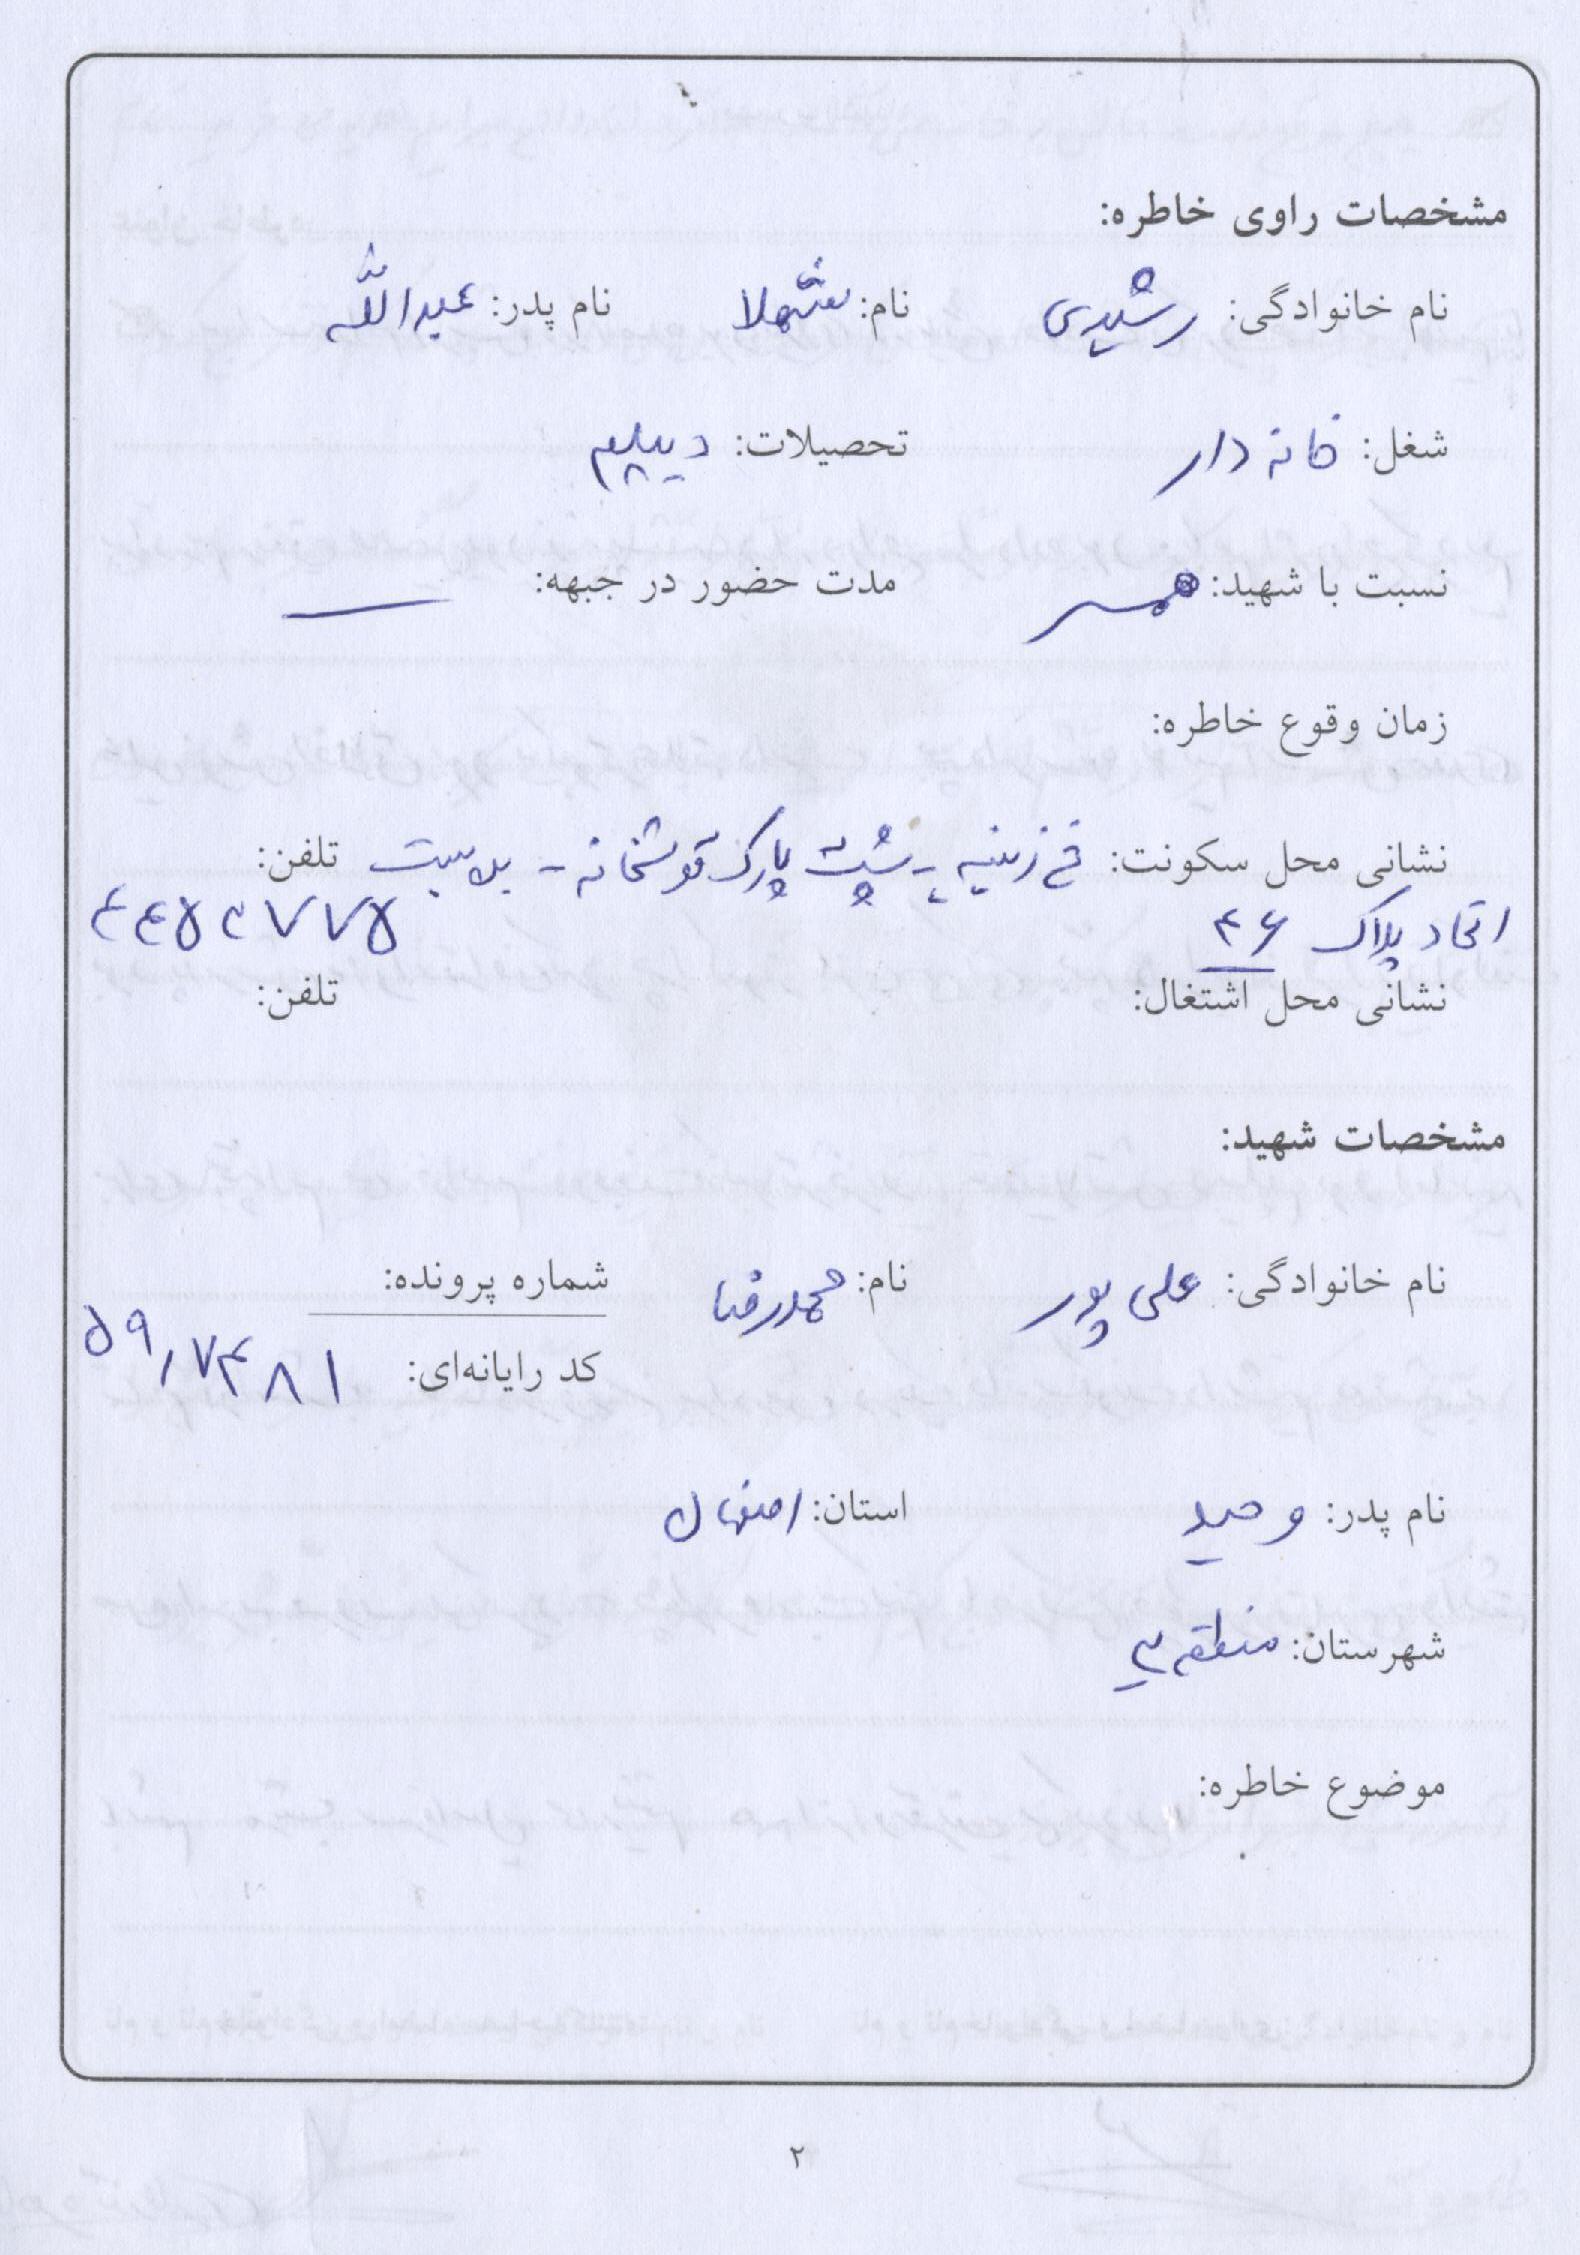 مشخصات راوی خاطره:
نام خانوادگی: رشیدی نام: شهلا نام پدر: عبدالله
شغل: خانه دار تحصیلات: دیپلم
نسبت با شهید: همسر مدت حضور در جبهه: —
زمان وقوع خاطره:
نشانی محل سکونت: خ زینبیه - پشت پارک قوشخانه - بن بست تلفن:
اتحاد پلاک ۴۶ ۴۴۵۲۷۷۵
نشانی محل اشتغال: تلفن:
مشخصات شهید:
نام خانوادگی: علی پور نام: محمدرضا شماره پرونده:
کد رایانه‌ای: ۵۹۱۷۴۸۱
نام پدر: وحید استان: اصفهان
شهرستان: منطقه ۳
موضوع خاطره:
۲